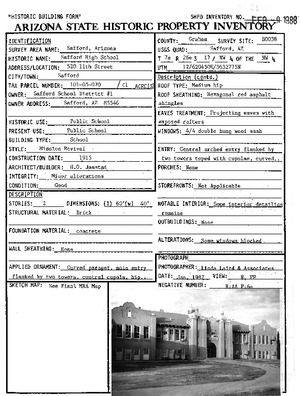 "HISTORIC BUILDING FORM"
SHPO INVENTORY NO.
FEB 9 1988
ARIZONA STATE HISTORIC PROPERTY INVENTORY
IDENTIFICATION
SURVEY AREA NAME: Safford, Arizona
HISTORIC NAME: Safford High School
ADDRESS/LOCATION: 520 11th Street
CITY/TOWN: Safford
TAX PARCEL NUMBER: 101-05-070
OWNER: Safford School District #1
OWNER ADDRESS: Safford, AZ 85546
HISTORIC USE: Public School
PRESENT USE: Public School
BUILDING TYPE: School
STYLE: Mission Revival
CONSTRUCTION DATE: 1915
ARCHITECT/BUILDER: H.O. Jaastad
INTEGRITY: Minor alterations
CONDITION: Good
DESCRIPTION
STORIES: 2 DIMENSIONS: (l) 60' (w) 40'
STRUCTURAL MATERIAL: Brick
FOUNDATION MATERIAL: concrete
WALL SHEATHING: None
APPLIED ORNAMENT: Curved parapet, main entry
flanked by two towers, central cupola, hip
SKETCH MAP: See Final MRA Map
COUNTY: Graham SURVEY SITE:
USGS QUAD: Safford, AZ
T 7s R 26e S 17 / NW ¼ OF THE NW ¼
UTM
Description (contd.)
ROOF TYPE: Medium hip
ROOF SHEATHING: Hexagonal red asphalt
shingles
EAVES TREATMENT: Projecting eaves with
exposed rafters
WINDOWS: 4/4 double hung wood sash
ENTRY: Central arched entry flanked by
two towers toped with cupolas, curved
PORCHES: None
STOREFRONTS: Not Applicable
NOTABLE INTERIOR: Some interior detailing
remains
OUTBUILDINGS: None
ALTERATIONS: Some windows blocked
PHOTOGRAPH
PHOTOGRAPHER: Linda Laird & Associates
DATE: Jan. 1987 VIEW:
NEGATIVE NUMBER: